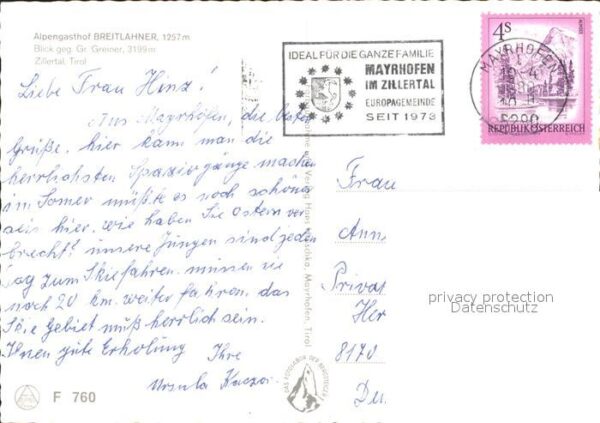 Alpengasthof BREITLAHNER, 1257 m
Blick geg. Gr. Greiner, 3199 m
Zillertal, Tirol
Liebe Frau Hinz!
Aus Mayrhofen, die besten
Grüße. hier kann man die
herrlichsten Spaziergänge machen
im Somer müßte es noch schöner
sein hier. wie haben Sie Ostern ver
bracht? unsere Jungen sind jeden
Tag zum Skifahren. müssen sie
noch 20 km. weiter fahren. das
Gebiet muß herrlich sein.
Ihnen gute Erholung Ihre
Ursula
F 760
IDEAL FÜR DIE GANZE FAMILIE
MAYRHOFEN
IM ZILLERTAL
EUROPAGEMEINDE
SEIT 1973
4S
REPUBLIK ÖSTERREICH
MAYRHOFEN
6290
Verlag Hans Mayrhofen, Tirol
Frau
Ann
Privat
Her
8170
privacy protection
Datenschutz